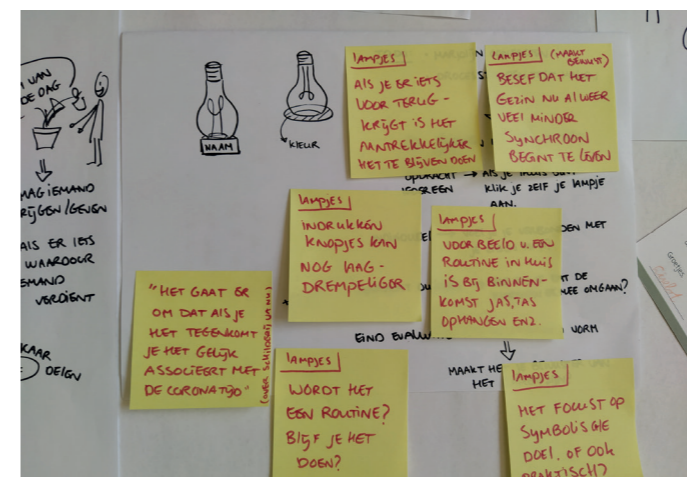 VAN
DE DAG
MAG IEMAND
KRIJGEN/GEVEN
ALS ER IETS
WAARDOOR
IEMAND
VERDIENT
NAAM
KLEUR
LAMPJES
ALS JE ER IETS
VOOR TERUG-
KRIJGT IS HET
AANTREKKELIJKER
HET TE BLIJVEN DOEN
LAMPJES (MAAKT BEWUST)
BESEF DAT HET
GEZIN NU AL WEER
VEEL MINDER
SYNCHROON
BEGINT TE LEVEN
OPDRACHT → ALS JE THUIS BENT
IEDEREEN KLIK JE ZELF JE LAMPJE
AAN.
LAMPJES
INDRUKKEN
KNOPJES KAN
NOG LAAG-
DREMPELIGER
LAMPJES
VOORBEELD V. EEN
ROUTINE IN HUIS
IS BIJ BINNEN-
KOMST JAS, TAS
OPHANGEN ENZ.
DEN MET
T DE
MEE OMGAAN?
"HET GAAT ER
OM DAT ALS JE
HET TEGENKOMT
JE HET GELIJK
ASSOCIEERT MET
DE CORONATIJD"
EIND EVALUATIE
VORM
MAAKT HE
HET
LAMPJES
WORDT HET
EEN ROUTINE?
BLIJF JE HET
DOEN?
LAMPJES
MET FOCUST OP
SYMBOLISCHE
DOEL, OF OOK
PRAKTISCH?